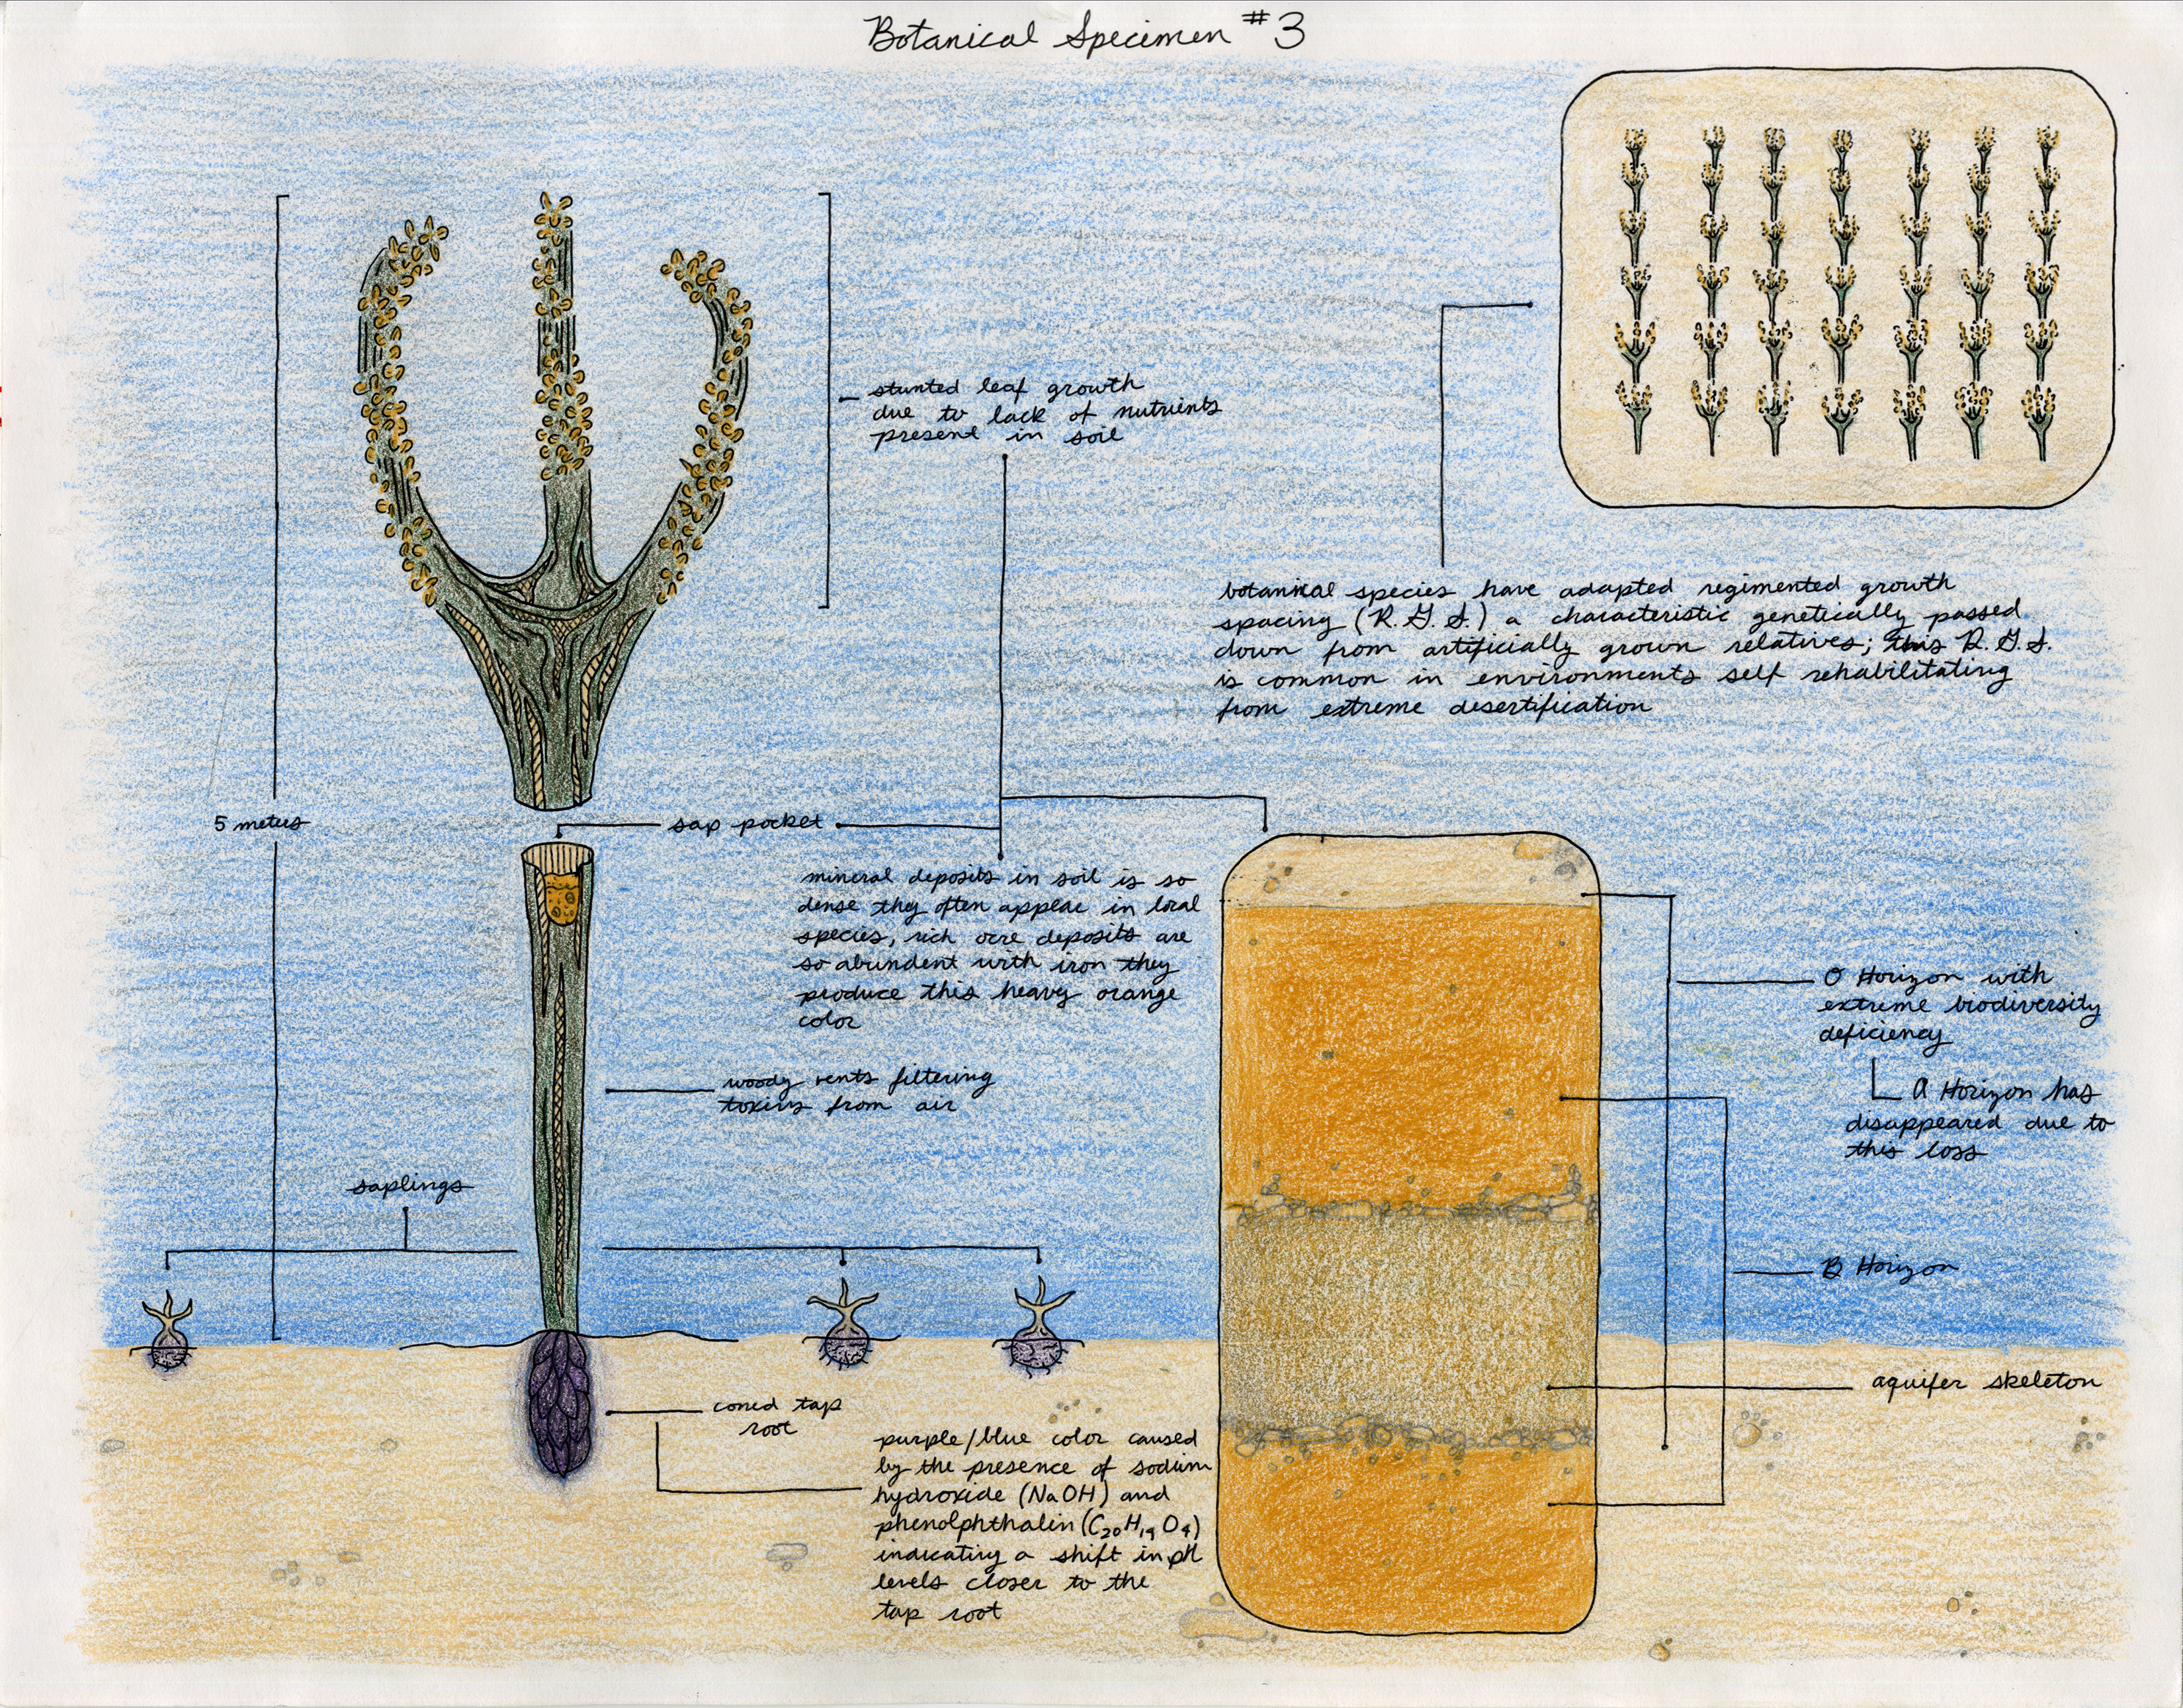 Botanical Specimen #3
stunted leaf growth
due to lack of nutrients
present in soil
botanical species have adapted regimented growth
spacing (R.G.S.) a characteristic genetically passed
down from artificially grown relatives; this R.G.S.
is common in environments self rehabilitating
from extreme desertification
5 meters
sap pocket
mineral deposits in soil is so
dense they often appear in local
species, rich ocre deposits are
so abundent with iron they
produce this heavy orange
color
woody vents filtering
toxins from air
saplings
coned tap
root
purple/blue color caused
by the presence of sodium
hydroxide (NaOH) and
phenolphthalin (C20H14O4)
indicating a shift in pH
levels closer to the
tap root
O Horizon with
extreme biodiversity
deficiency
A Horizon has
disappeared due to
this loss
B Horizon
aquifer skeleton